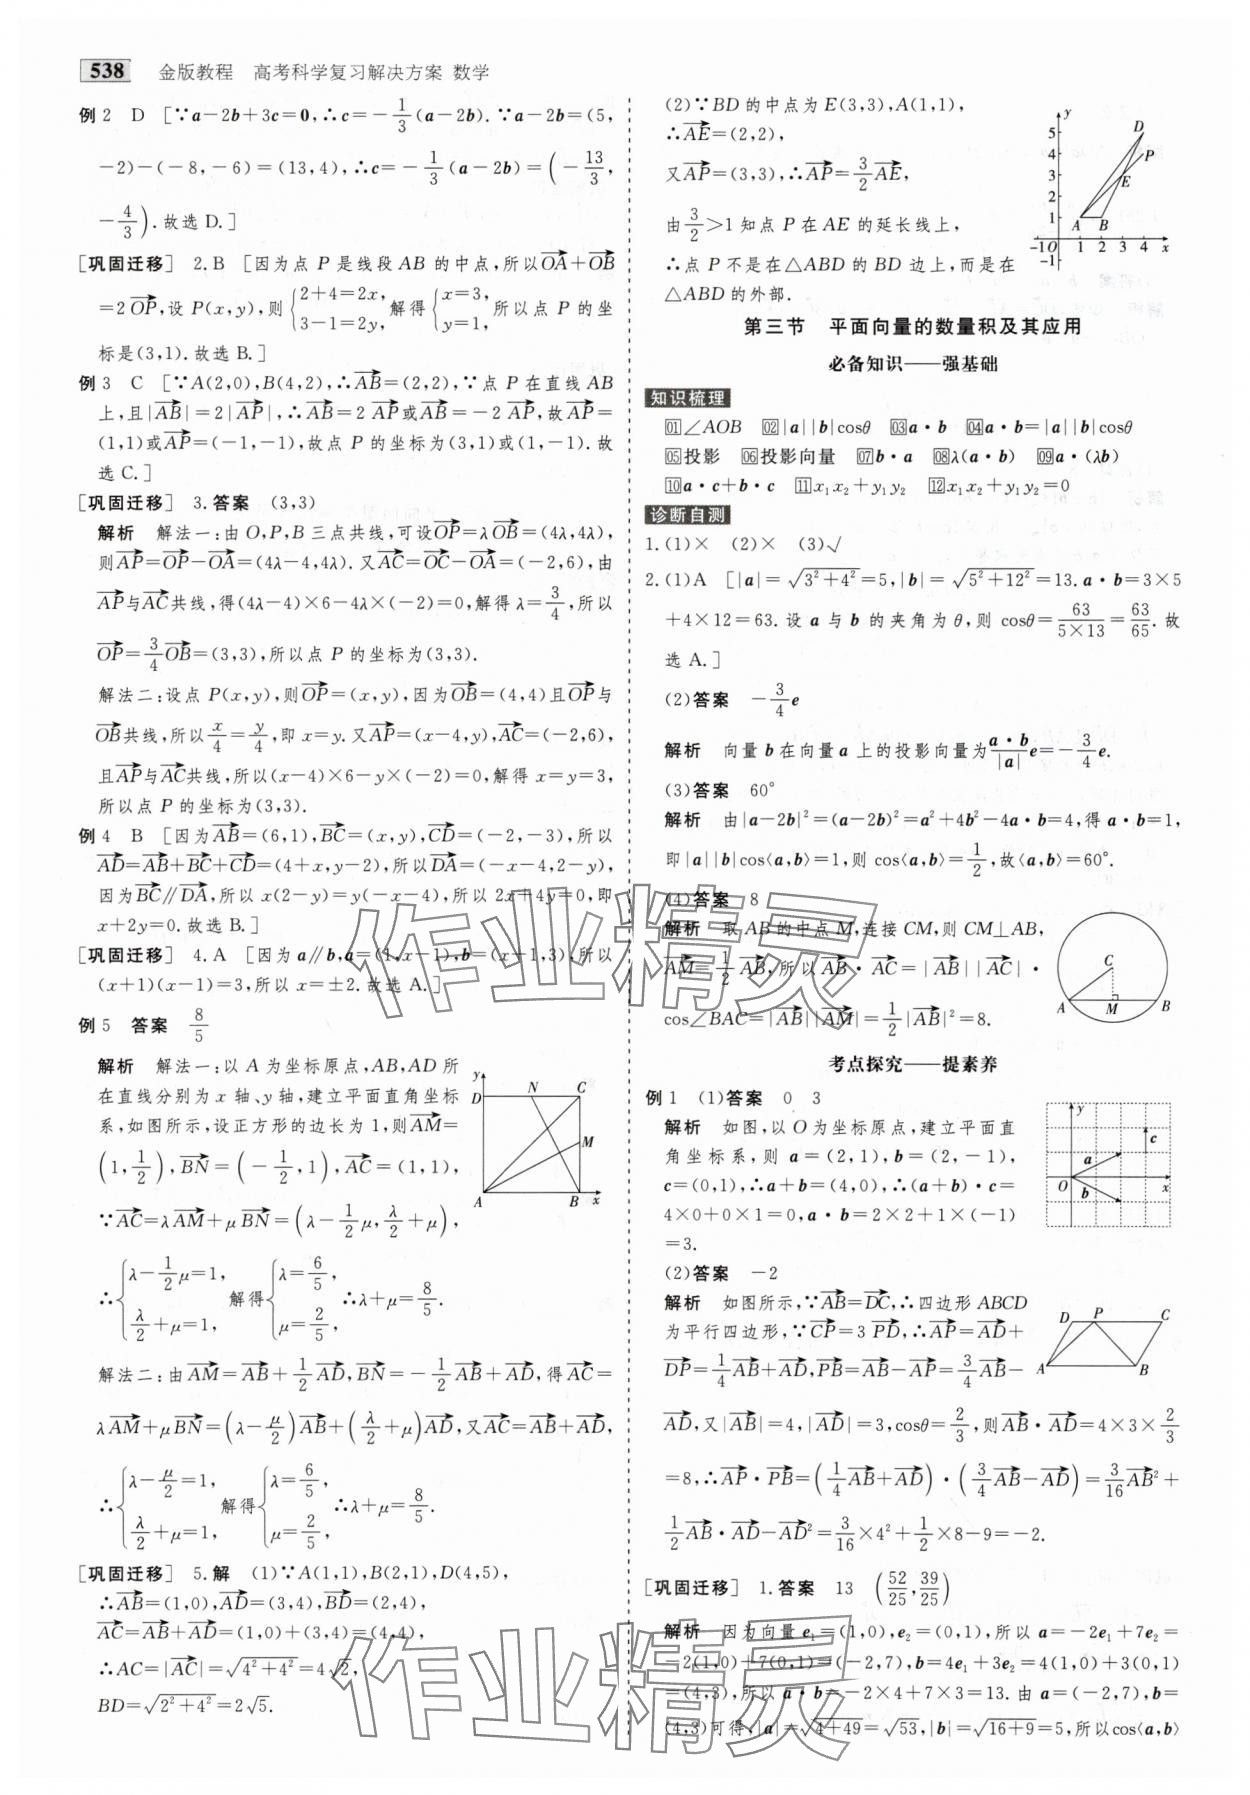 538 金版教程 高考科学复习解决方案 数学
例2 D [∵a-2b+3c=0,∴c=-1/3(a-2b).∵a-2b=(5,
-2)-(-8,-6)=(13,4),∴c=-1/3(a-2b)=(-13/3,
-4/3).故选D.]
[巩固迁移] 2.B [因为点P是线段AB的中点,所以OA→+OB→
=2OP→,设P(x,y),则{2+4=2x, 3-1=2y,解得{x=3, y=1,所以点P的坐
标是(3,1).故选B.]
例3 C [∵A(2,0),B(4,2),∴AB→=(2,2),∵点P在直线AB
上,且|AB→|=2|AP→|,∴AB→=2AP→或AB→=-2AP→,故AP→=
(1,1)或AP→=(-1,-1),故点P的坐标为(3,1)或(1,-1).故
选C.]
[巩固迁移] 3.答案 (3,3)
解析 解法一:由O,P,B三点共线,可设OP→=λOB→=(4λ,4λ),
则AP→=OP→-OA→=(4λ-4,4λ).又AC→=OC→-OA→=(-2,6),由
AP→与AC→共线,得(4λ-4)×6-4λ×(-2)=0,解得λ=3/4,所以
OP→=3/4OB→=(3,3),所以点P的坐标为(3,3).
解法二:设点P(x,y),则OP→=(x,y),因为OB→=(4,4)且OP→与
OB→共线,所以x/4=y/4,即x=y.又AP→=(x-4,y),AC→=(-2,6),
且AP→与AC→共线,所以(x-4)×6-y×(-2)=0,解得x=y=3,
所以点P的坐标为(3,3).
例4 B [因为AB→=(6,1),BC→=(x,y),CD→=(-2,-3),所以
AD→=AB→+BC→+CD→=(4+x,y-2),所以DA→=(-x-4,2-y),
因为BC→∥DA→,所以x(2-y)=y(-x-4),所以2x+4y=0,即
x+2y=0.故选B.]
[巩固迁移] 4.A [因为a∥b,a=(1,x-1),b=(x+1,3),所以
(x+1)(x-1)=3,所以x=±2.故选A.]
例5 答案 8/5
解析 解法一:以A为坐标原点,AB,AD所
在直线分别为x轴、y轴,建立平面直角坐标
系,如图所示,设正方形的边长为1,则AM→=
(1,1/2),BN→=(-1/2,1),AC→=(1,1),
∵AC→=λAM→+μBN→=(λ-1/2μ,λ/2+μ),
∴{λ-1/2μ=1, λ/2+μ=1,解得{λ=6/5, μ=2/5,∴λ+μ=8/5.
y D N C M A B x
解法二:由AM→=AB→+1/2AD→,BN→=-1/2AB→+AD→,得AC→=
λAM→+μBN→=(λ-μ/2)AB→+(λ/2+μ)AD→,又AC→=AB→+AD→,
∴{λ-μ/2=1, λ/2+μ=1,解得{λ=6/5, μ=2/5,∴λ+μ=8/5.
[巩固迁移] 5.解 (1)∵A(1,1),B(2,1),D(4,5),
∴AB→=(1,0),AD→=(3,4),BD→=(2,4),
AC→=AB→+AD→=(1,0)+(3,4)=(4,4),
∴AC=|AC→|=√(4²+4²)=4√2,
BD=√(2²+4²)=2√5.
(2)∵BD的中点为E(3,3),A(1,1),
∴AE→=(2,2),
又AP→=(3,3),∴AP→=3/2AE→,
由3/2>1知点P在AE的延长线上,
∴点P不是在△ABD的BD边上,而是在
△ABD的外部.
y 5 4 3 2 1 D P E A B -1 O 1 2 3 4 x -1
第三节 平面向量的数量积及其应用
必备知识——强基础
知识梳理
01∠AOB 02|a||b|cosθ 03a·b 04a·b=|a||b|cosθ
05投影 06投影向量 07b·a 08λ(a·b) 09a·(λb)
10a·c+b·c 11x₁x₂+y₁y₂ 12x₁x₂+y₁y₂=0
诊断自测
1.(1)× (2)× (3)√
2.(1)A [|a|=√(3²+4²)=5,|b|=√(5²+12²)=13.a·b=3×5
+4×12=63.设a与b的夹角为θ,则cosθ=63/(5×13)=63/65.故
选A.]
(2)答案 -3/4e
解析 向量b在向量a上的投影向量为a·b/|a|e=-3/4e.
(3)答案 60°
解析 由|a-2b|²=(a-2b)²=a²+4b²-4a·b=4,得a·b=1,
即|a||b|cos⟨a,b⟩=1,则cos⟨a,b⟩=1/2,故⟨a,b⟩=60°.
(4)答案 8
解析 取AB的中点M,连接CM,则CM⊥AB,
AM→=1/2AB→,所以AB→·AC→=|AB→||AC→|·
cos∠BAC=|AB→||AM→|=1/2|AB→|²=8.
C A M B
考点探究——提素养
例1 (1)答案 0 3
解析 如图,以O为坐标原点,建立平面直
角坐标系,则a=(2,1),b=(2,-1),
c=(0,1),∴a+b=(4,0),∴(a+b)·c=
4×0+0×1=0,a·b=2×2+1×(-1)
=3.
y c a O b x
(2)答案 -2
解析 如图所示,∵AB→=DC→,∴四边形ABCD
为平行四边形,∵CP→=3PD→,∴AP→=AD→+
DP→=1/4AB→+AD→,PB→=AB→-AP→=3/4AB→-
AD→,又|AB→|=4,|AD→|=3,cosθ=2/3,则AB→·AD→=4×3×2/3
=8,∴AP→·PB→=(1/4AB→+AD→)·(3/4AB→-AD→)=3/16AB→²+
1/2AB→·AD→-AD→²=3/16×4²+1/2×8-9=-2.
D P C A B
[巩固迁移] 1.答案 13 (52/25,39/25)
解析 因为向量e₁=(1,0),e₂=(0,1),所以a=-2e₁+7e₂=
-2(1,0)+7(0,1)=(-2,7),b=4e₁+3e₂=4(1,0)+3(0,1)
=(4,3),所以a·b=-2×4+7×3=13.由a=(-2,7),b=
(4,3)可得,|a|=√(4+49)=√53,|b|=√(16+9)=5,所以cos⟨a,b⟩
作业精灵
作业精灵